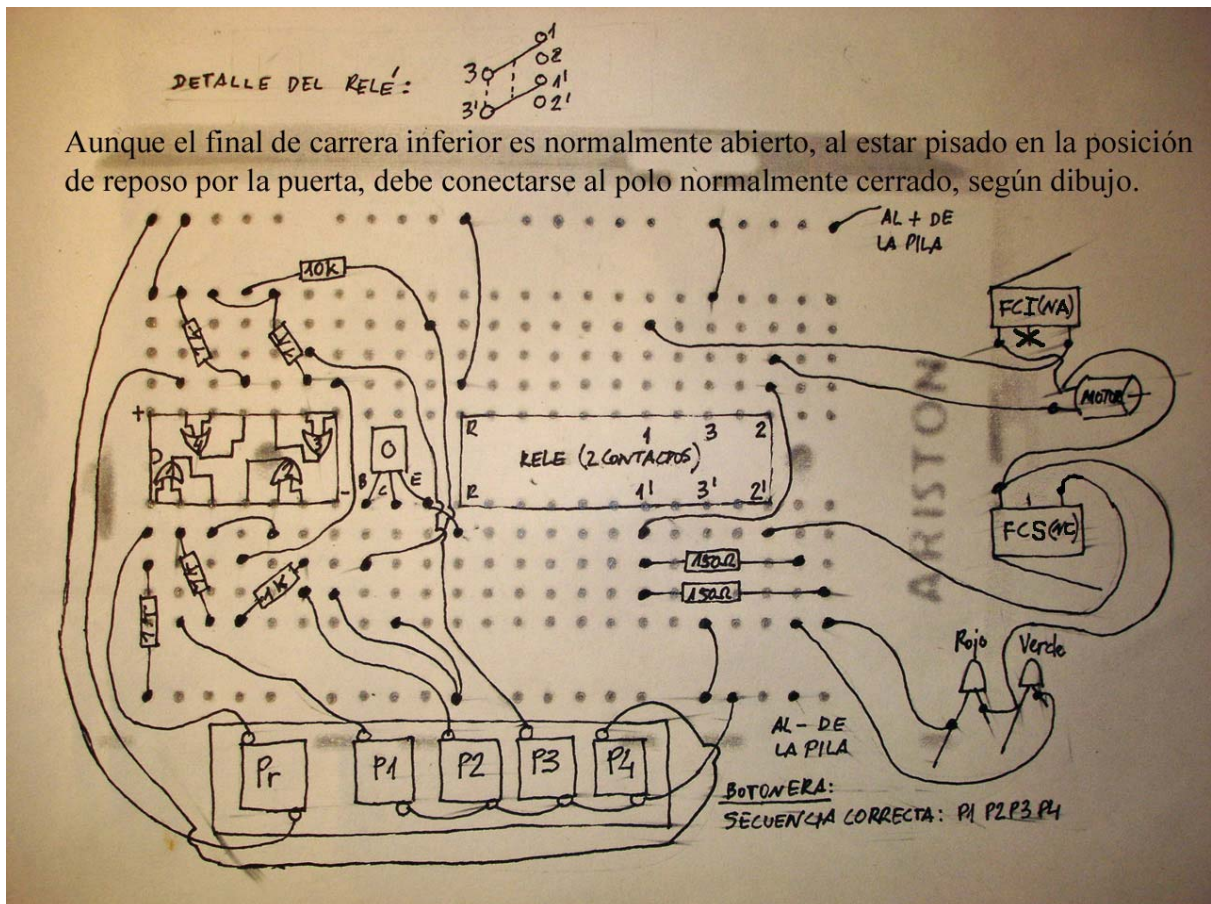 DETALLE DEL RELÉ:
1
2
3
1'
3'
2'
Aunque el final de carrera inferior es normalmente abierto, al estar pisado en la posición
de reposo por la puerta, debe conectarse al polo normalmente cerrado, según dibujo.
AL + DE
LA PILA
10K
FCI(NA)
1K
1K
MOTOR
+
4
3
1
2
-
B
C
E
R
1
3
2
RELE (2 CONTACTOS)
R
1'
3'
2'
ARISTON
FCS(NC)
1K
1K
1K
150Ω
150Ω
Rojo
Verde
AL - DE
LA PILA
Pr
P1
P2
P3
P4
BOTONERA:
SECUENCIA CORRECTA: P1 P2 P3 P4